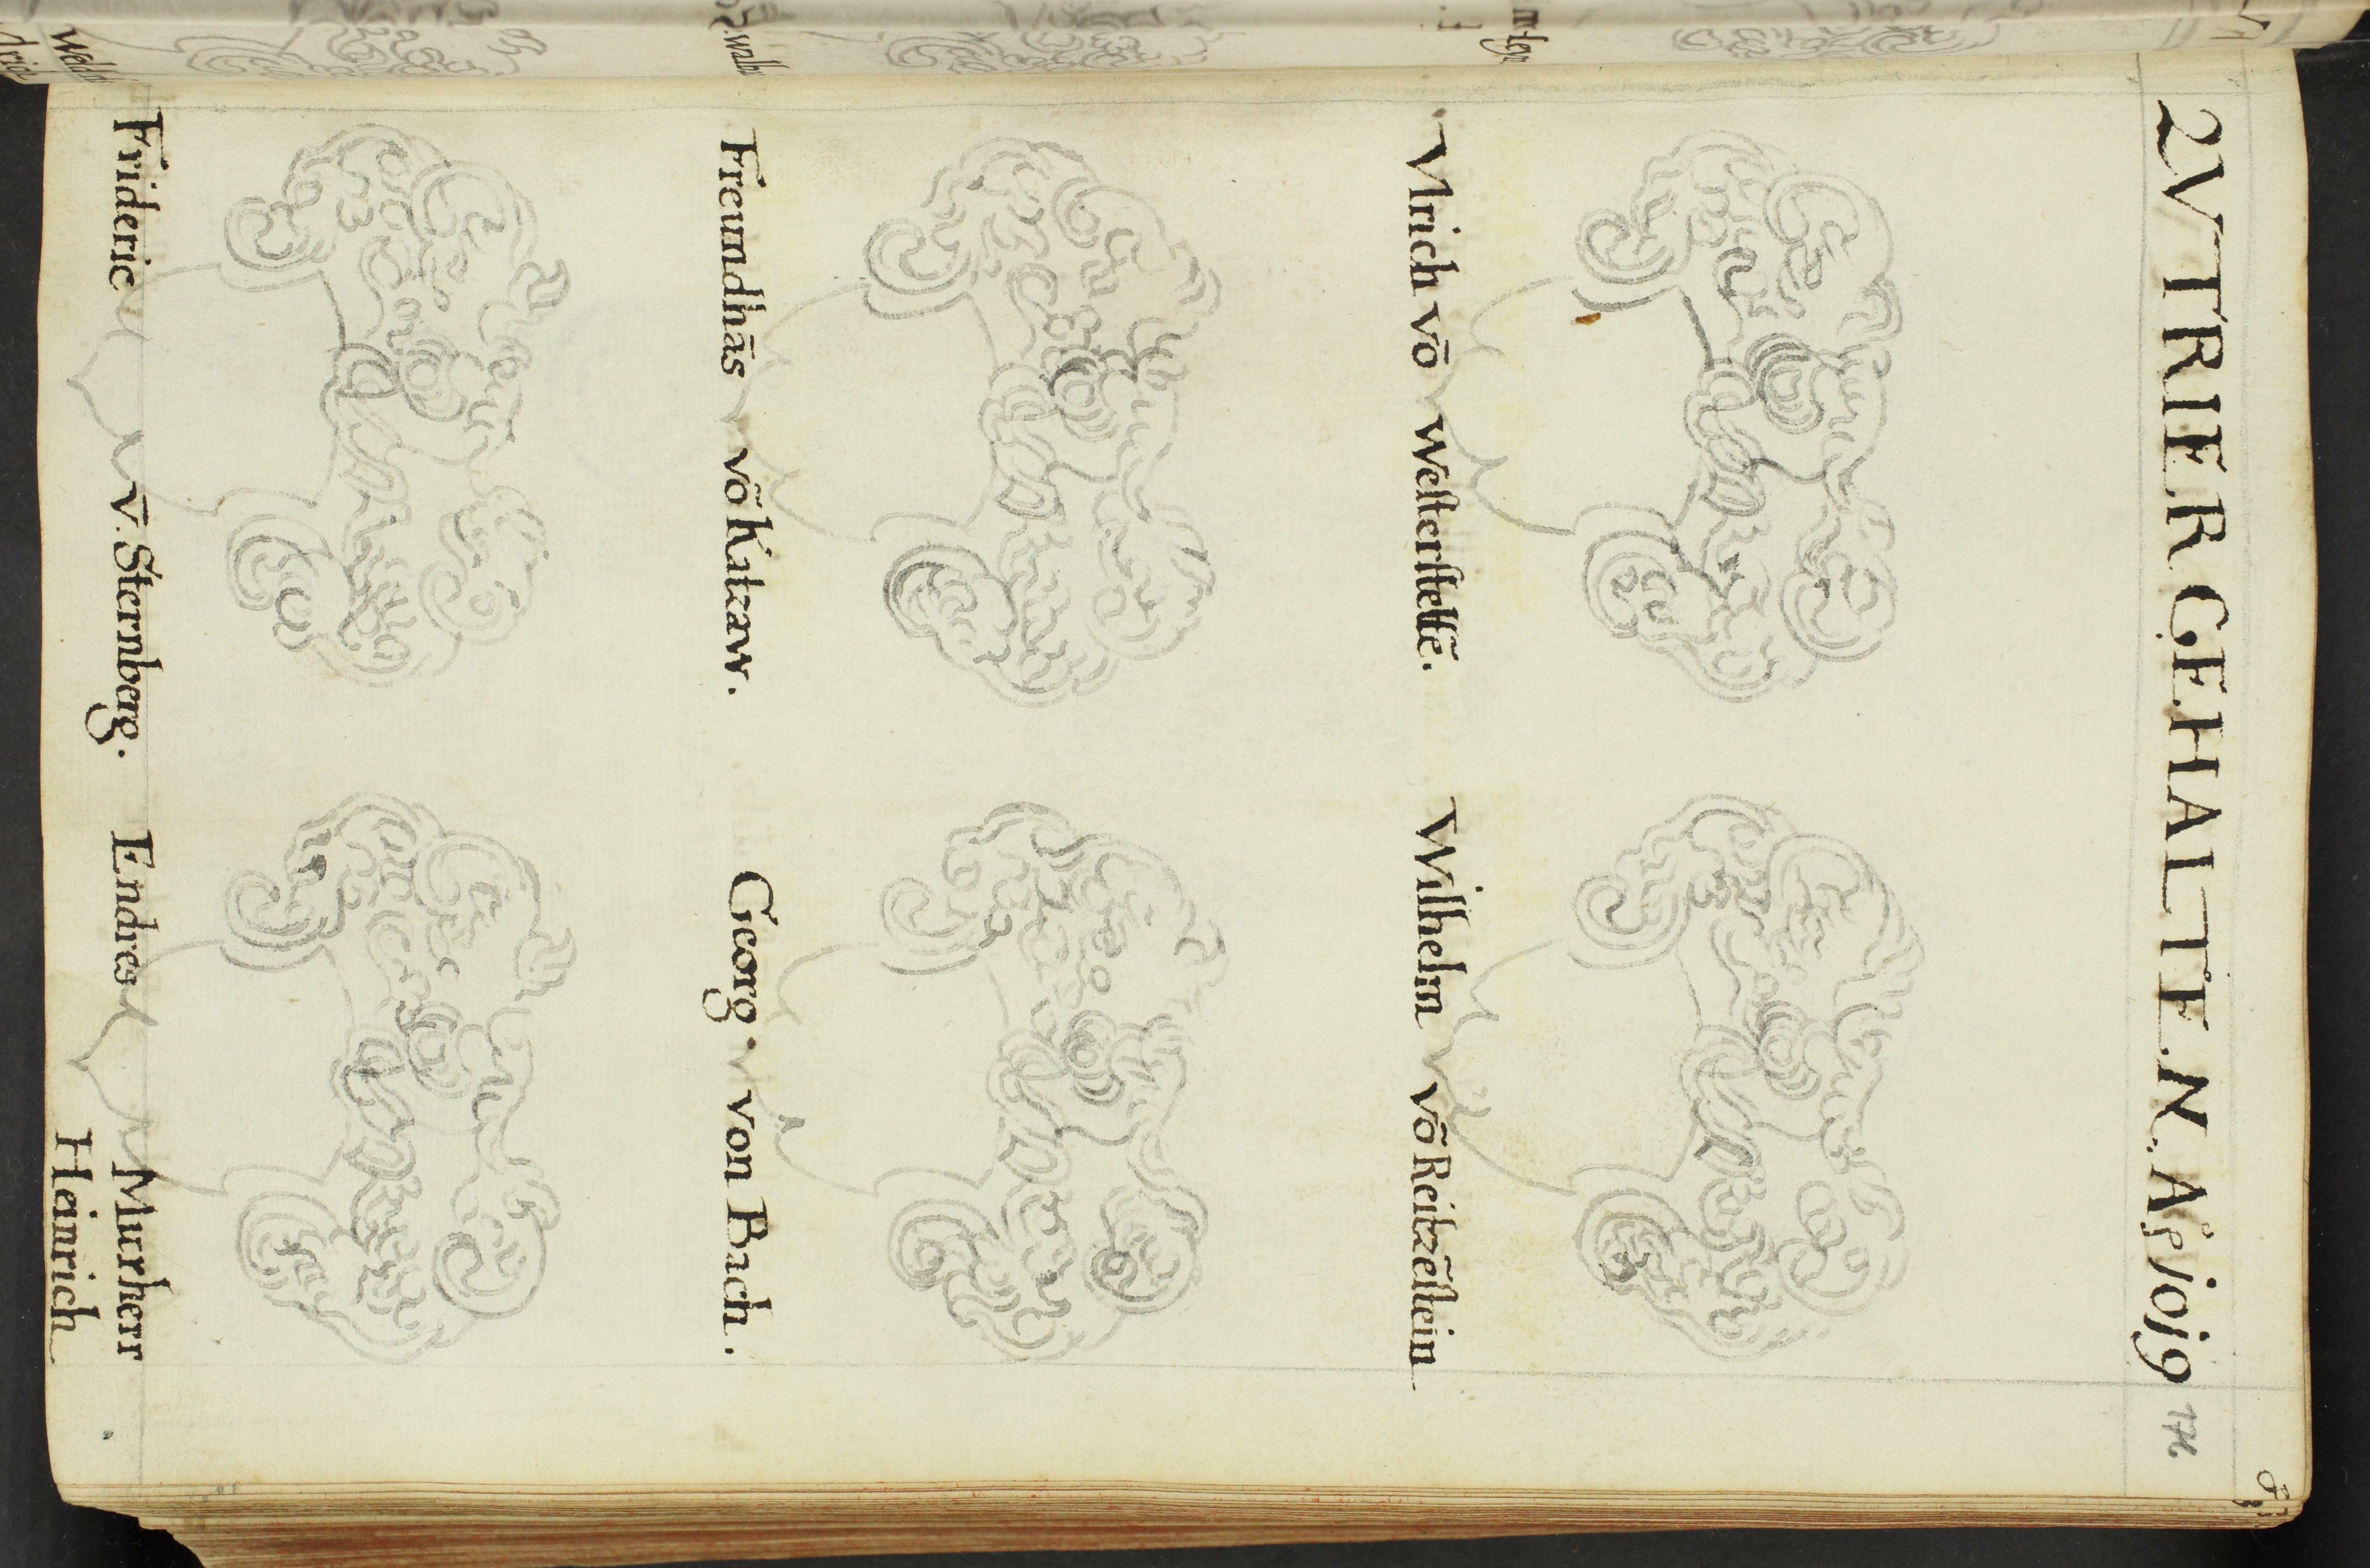 ZV TRIER GEHALTEN. Aō 1019
Vlrich vō Weſterſtettē. Wilhelm vō Reitzēſtein
Freimdhās vō Katzaw. Georg. von Bach.
Frideric v̄. Sternberg. Endres Murrherr
Heinrich